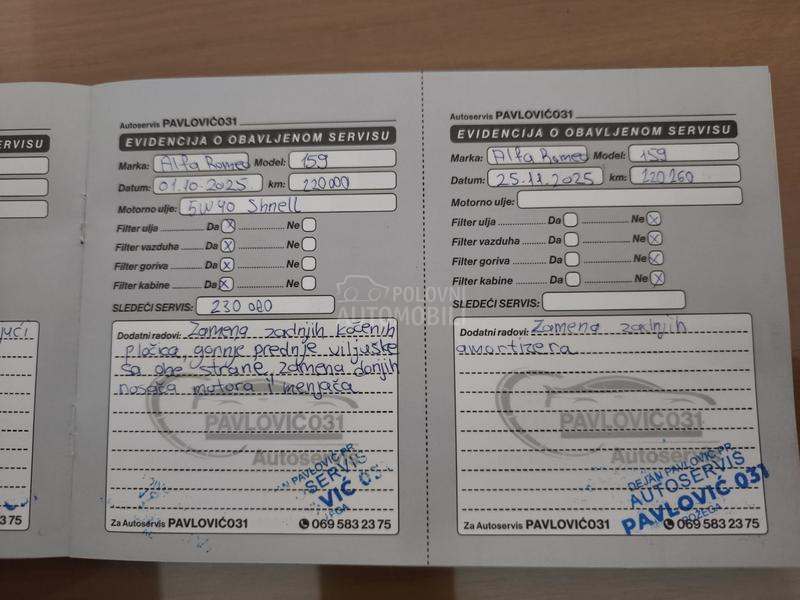 ERVISU
jući
3 75
Autoservis PAVLOVIĆ031
EVIDENCIJA O OBAVLJENOM SERVISU
Marka: Alfa Romeo Model: 159
Datum: 01.10.2025 km: 220000
Motorno ulje: 5W40 Shnell
Filter ulja Da X Ne
Filter vazduha Da X Ne
Filter goriva Da X Ne
Filter kabine Da X Ne
SLEDEĆI SERVIS: 230 000
Dodatni radovi: Zamena zadnjih kočenih
pločica, gornje prednje viljuške
sa obe strane, zamena donjih
nosača motora i menjača
PAVLOVIĆ031
Autoservis
PAVLOVIĆ PR
SERVIS
VIĆ 03
Za Autoservis PAVLOVIĆ031 069 583 23 75
Autoservis PAVLOVIĆ031
EVIDENCIJA O OBAVLJENOM SERVISU
Marka: Alfa Romeo Model: 159
Datum: 25.11.2025 km: 220260
Motorno ulje:
Filter ulja Da Ne X
Filter vazduha Da Ne X
Filter goriva Da Ne X
Filter kabine Da Ne X
SLEDEĆI SERVIS:
Dodatni radovi: Zamena zadnjih
amortizera
PAVLOVIĆ031
Autoservis
DEJAN PAVLOVIĆ PR
AUTOSERVIS
PAVLOVIĆ 031
POŽEGA
Za Autoservis PAVLOVIĆ031 069 583 23 75
POLOVNI
AUTOMOBILI